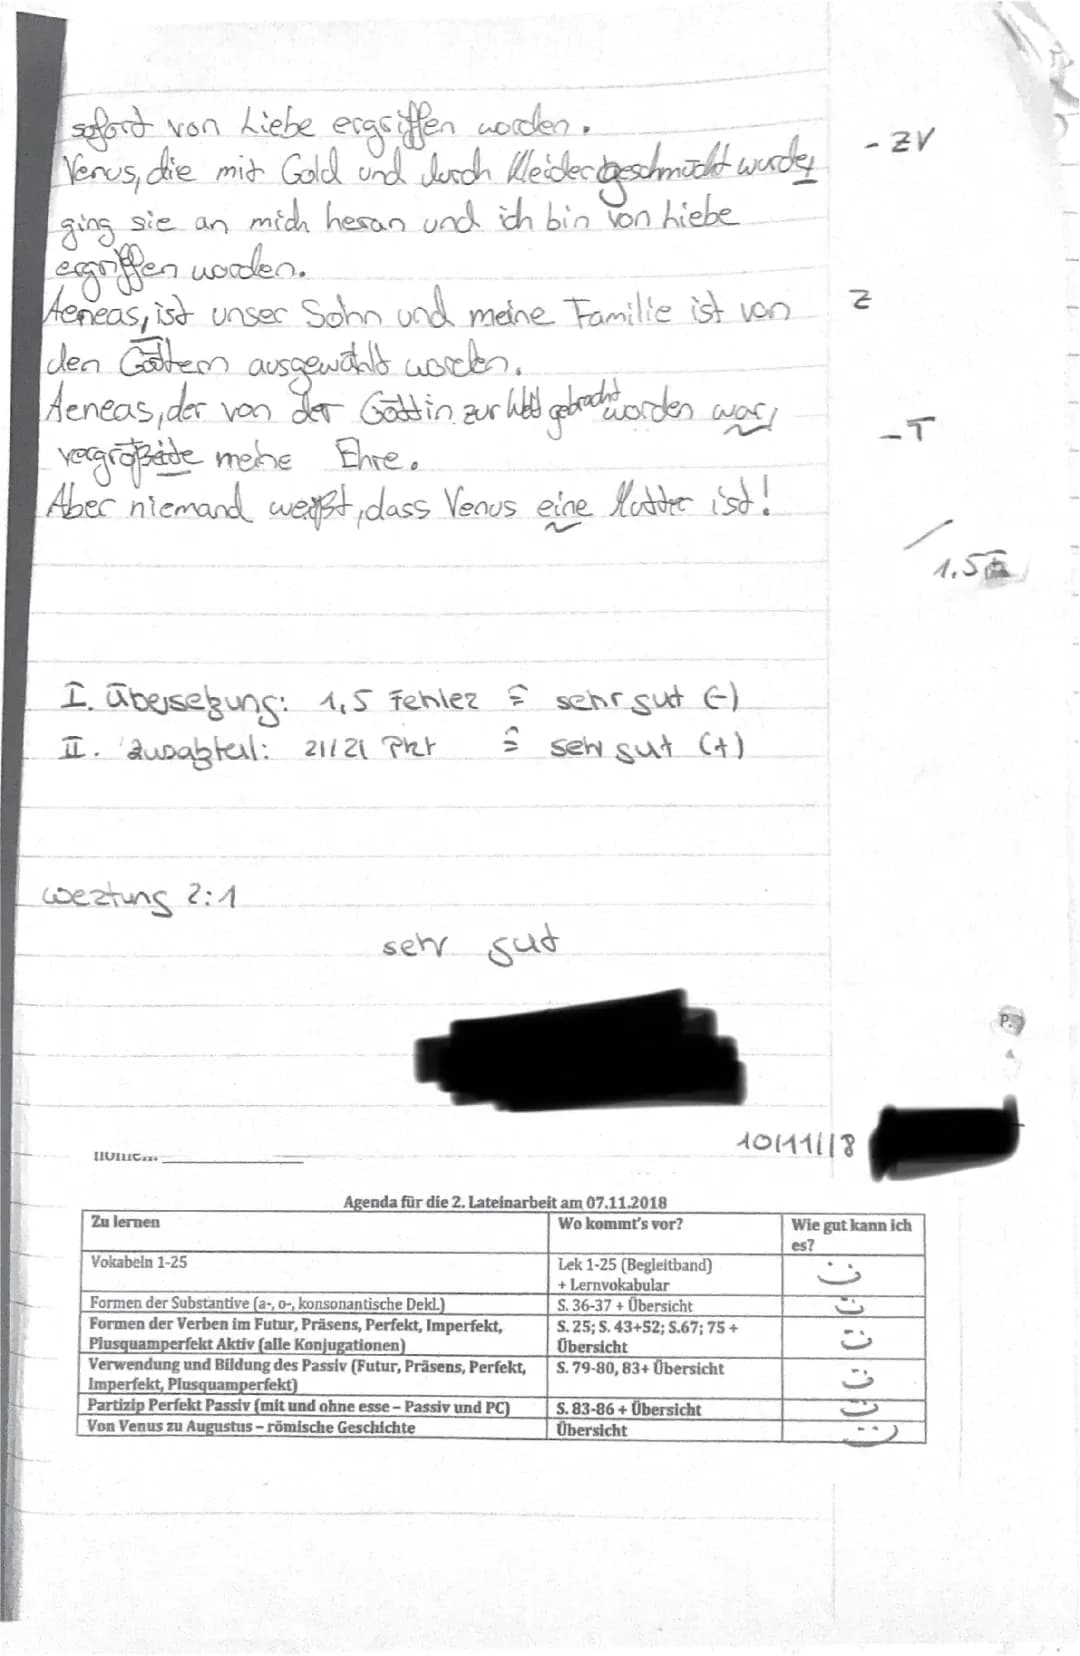 sofort von Liebe ergriffen worden.
- ZV
Venus, die mit Gold und durch Kleider geschmückt wurde,
ging sie an mich heran und ich bin von Liebe
ergriffen worden.
Aeneas, ist unser Sohn und meine Familie ist von
Z
den Göttern ausgewählt worden.
Aeneas, der von der Göttin zur Welt gebracht worden war,
- T
vergrößerte meine Ehre.
Aber niemand weißt, dass Venus eine Mutter ist!
1,5
I. Übersetzung: 1,5 Fehler ≙ sehr gut (-)
II. Zusatzteil: 21/21 Pkt ≙ sehr gut (+)
Wertung 2:1
sehr gut
P.
10/11/18
Agenda für die 2. Lateinarbeit am 07.11.2018
Zu lernen
Wo kommt's vor?
Wie gut kann ich
es?
Vokabeln 1-25
Lek 1-25 (Begleitband)
+ Lernvokabular
Formen der Substantive (a-, o-, konsonantische Dekl.)
S. 36-37 + Übersicht
Formen der Verben im Futur, Präsens, Perfekt, Imperfekt,
Plusquamperfekt Aktiv (alle Konjugationen)
S. 25; S. 43+52; S.67; 75 +
Übersicht
Verwendung und Bildung des Passiv (Futur, Präsens, Perfekt,
Imperfekt, Plusquamperfekt)
S. 79-80, 83+ Übersicht
Partizip Perfekt Passiv (mit und ohne esse – Passiv und PC)
S. 83-86 + Übersicht
Von Venus zu Augustus – römische Geschichte
Übersicht